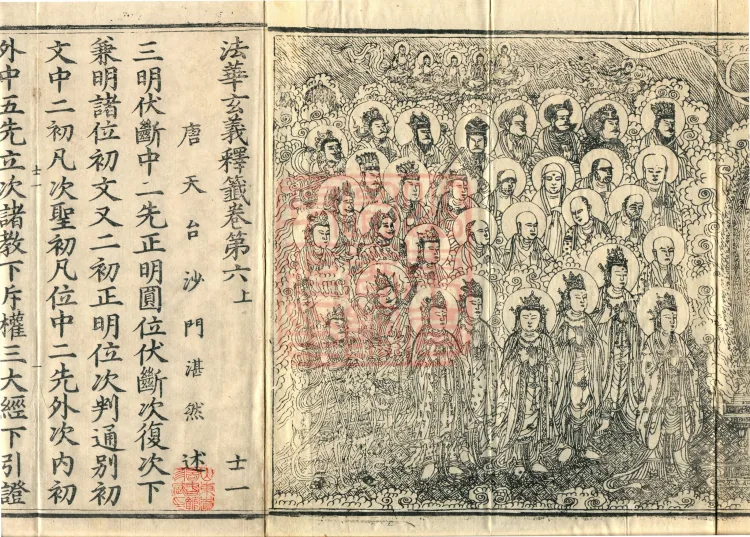 法華玄義釋籤卷第六上
唐天台沙門湛然述
士一
三明伏斷中二先正明圓位伏斷次復次下
兼明諸位初文又二初正明位次判通別初
文中二初凡次聖初凡位中二先外次內初
士一
外中五先立次諸教下斥權三大經下引證